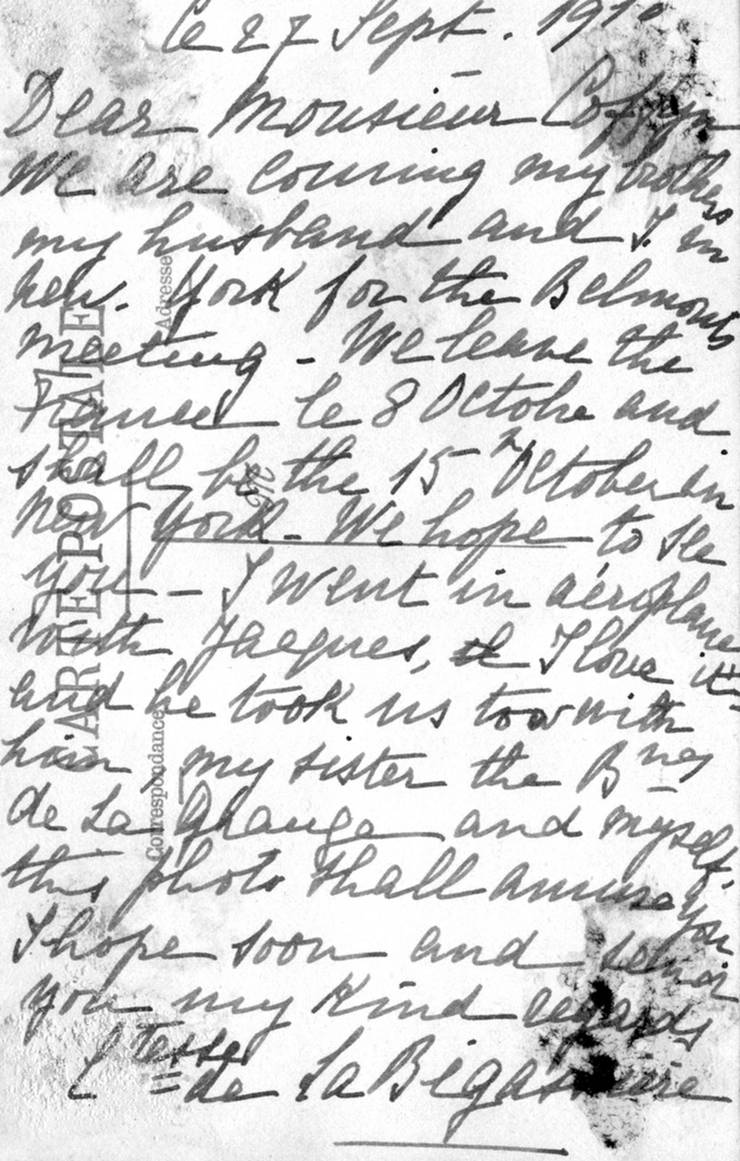 le 27 Sept. 1910
Dear Monsieur
We are coming my brothers
my husband and I in
new. York for the Belmont
meeting - We leave the
France le 8 Octobre and
shall be the 15 October in
New York - We hope to see
you - I went in aéroplane
with Jacques, I love it -
and he took us tow with
him my sister the Bnes
de La Grange and myself.
this photo shall amuse you
I hope soon and send
you my Kind regards
Ctesse de La Bigassière
CARTE POSTALE
Correspondance
Adresse
M